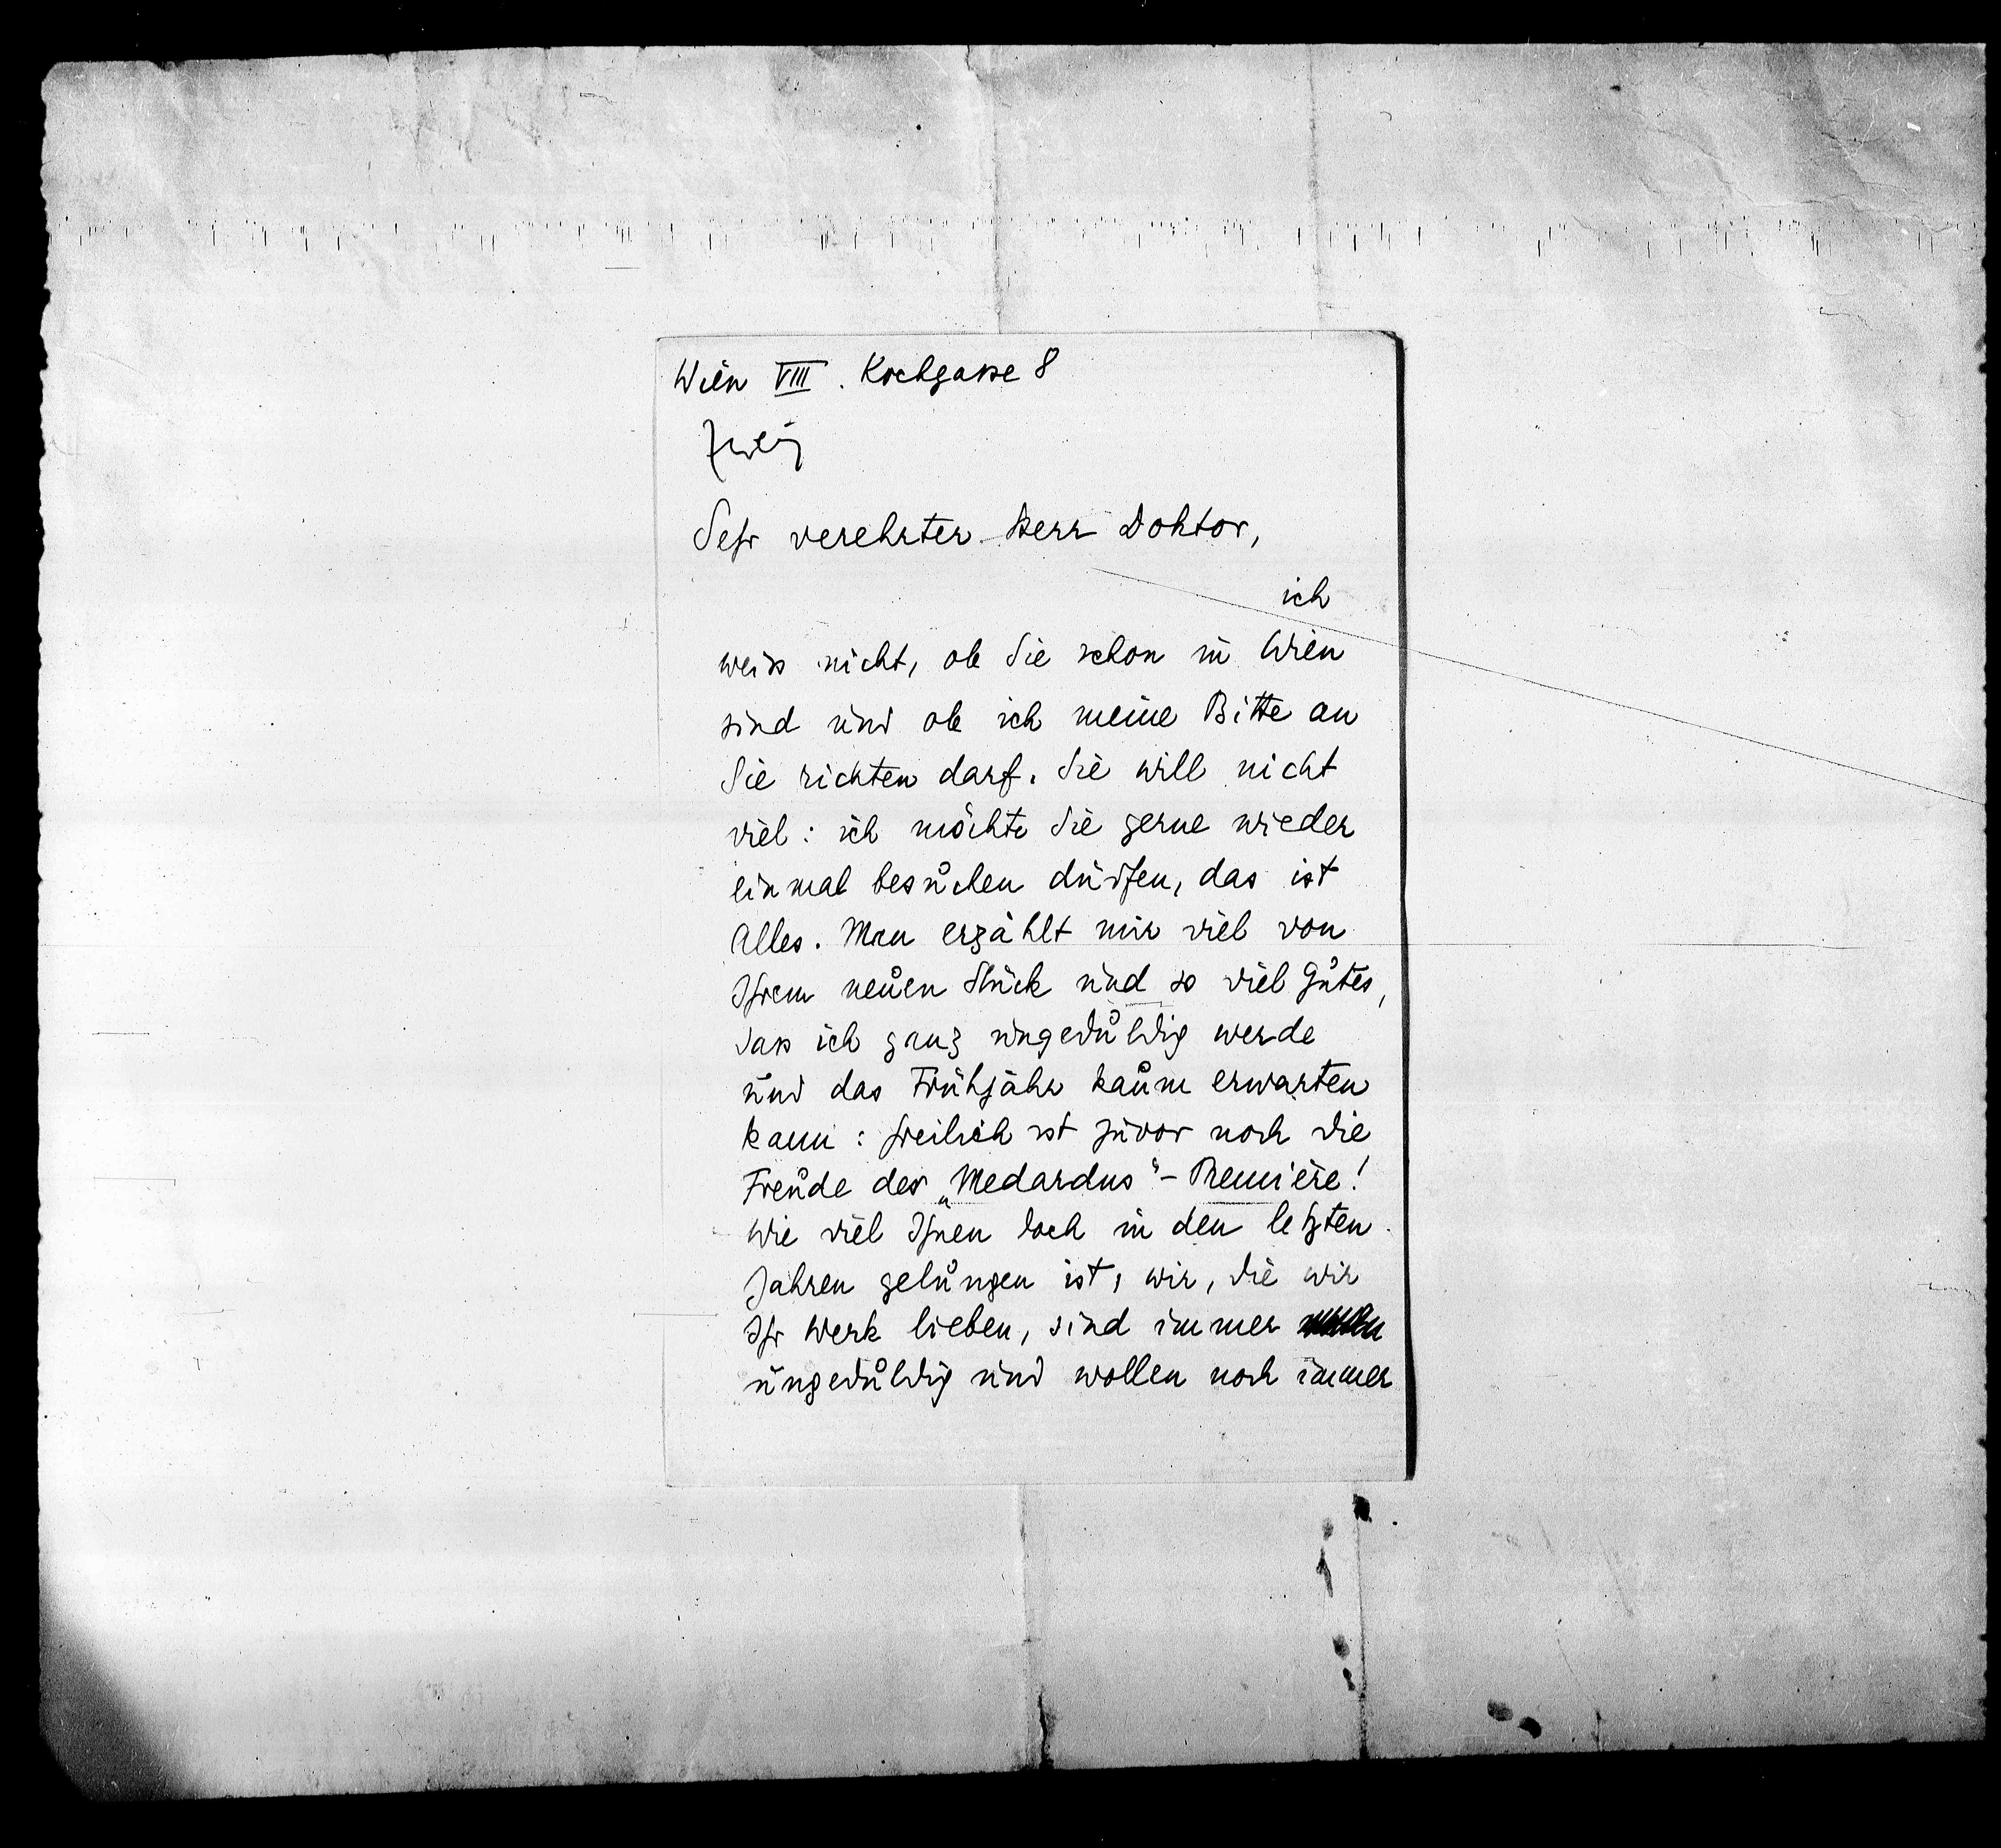 Wien VIII. Kochgasse 8
Zweig
Sehr verehrter Herr Doktor,
ich
weiss nicht, ob Sie schon in Wien
sind und ob ich meine Bitte an
Sie richten darf. Sie will nicht
viel: ich möchte Sie gerne wieder
einmal besuchen dürfen, das ist
Alles. Man erzählt mir viel von
Ihrem neuen Stück und so viel Gutes,
dass ich ganz ungeduldig werde
und das Frühjahr kaum erwarten
kann: freilich ist zuvor noch die
Freude der „Medardus“-Première!
Wie viel Ihnen doch in den letzten
Jahren gelungen ist, wir, die wir
Ihr Werk lieben, sind immer
ungeduldig und wollen noch immer